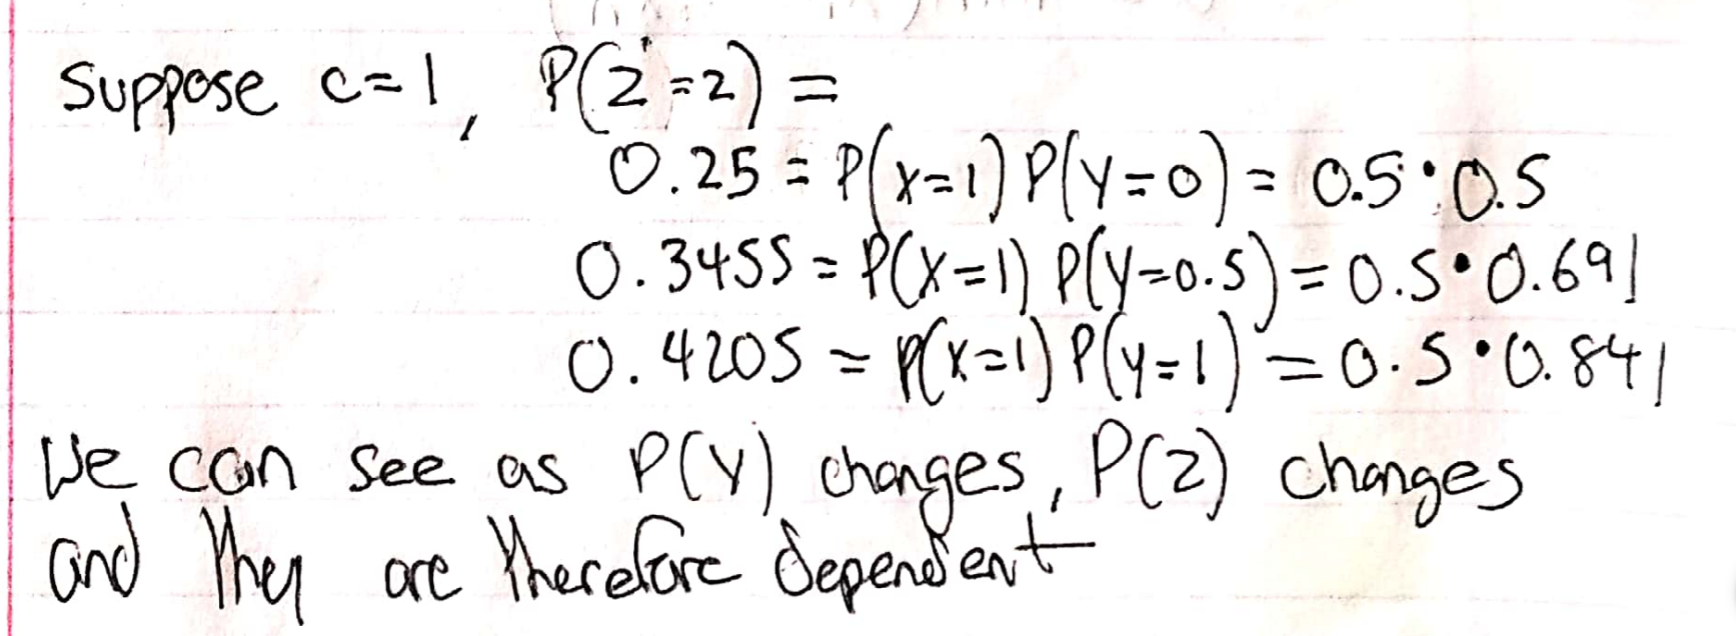 Suppose c=1, P(Z=2) =
0.25 = P(X=1) P(Y=0) = 0.5·0.5
0.3455 = P(X=1) P(Y=0.5) = 0.5·0.691
0.4205 = P(X=1) P(Y=1) = 0.5·0.841
We can see as P(Y) changes, P(Z) changes
and they are therefore dependent